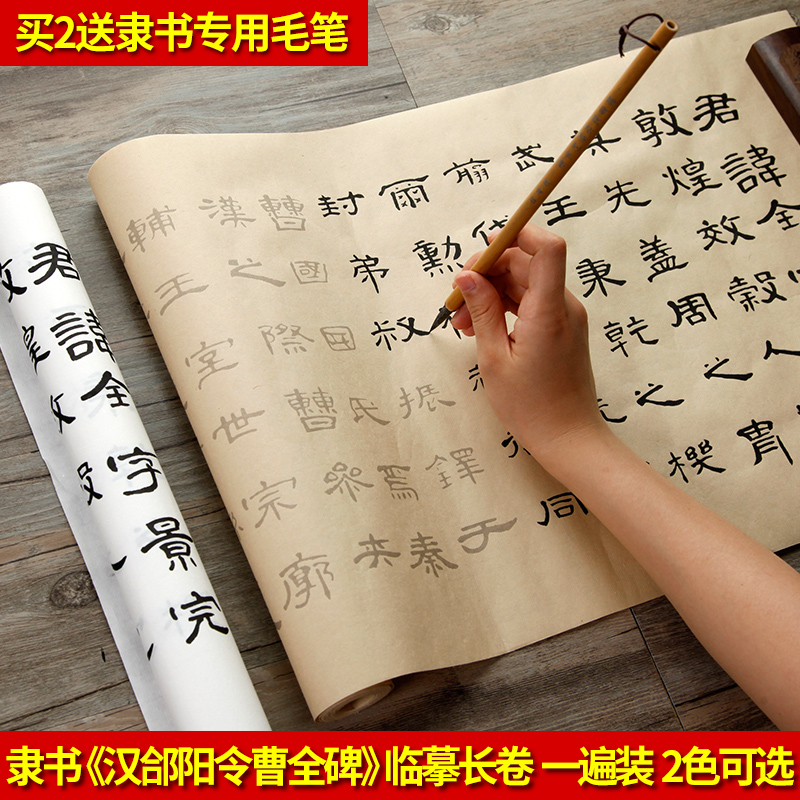 买2送隶书专用毛笔
君諱全
敦煌效穀人
其先蓋周之冑
武王秉乾之機
翦伐
爾勳同
封弟叔振鐸于
曹國因氏焉秦
漢之際曹參夾
輔王室世宗廓
君諱全字景完
隶书《汉郃阳令曹全碑》临摹长卷 一遍装 2色可选